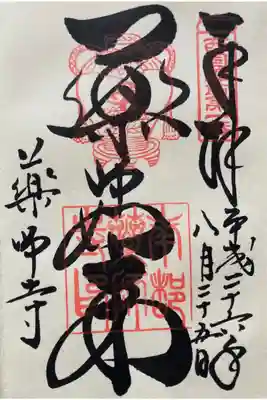 奉拝
平成二十六年
八月二十五日
薬師如来
薬師寺